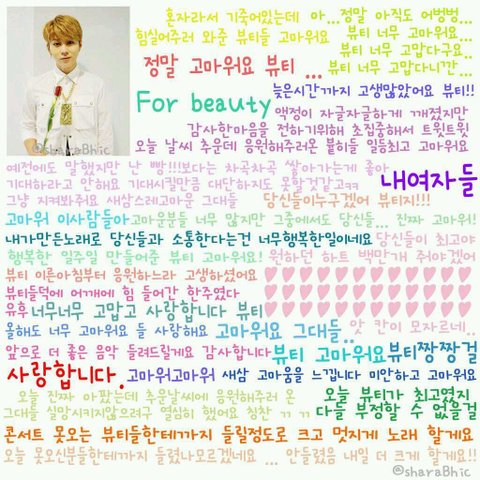 혼자라서 기죽어있는데 아...정말 아직도 어벙벙...
힘실어주러 와준 뷰티들 고마워요 뷰티 너무 고마워요...
뷰티 너무 고맙다구요..
정말 고마워요 뷰티 ... 뷰티 너무 고맙다니깐...
늦은시간까지 고생많았어요 뷰티!!
For beauty 액정이 자글자글하게 깨졌지만
감사한마음을 전하기위해 초집중해서 트윗트윗
오늘 날씨 추운데 응원해주러온 붙히들 일등최고 고마워요
@sharaBhic
예전에도 말했지만 난 빵!!!보다는 차곡차곡 쌓아가는게 좋아
기대하라고 안해요 기대시킬만큼 대단하지도 못할것같고ㅋㅋ
내여자들
그냥 지켜봐주요 새삼스레고마운 그대들 당신들이누구겠어 뷰티지!!!
고마워 이사람들아 고마운분들 너무 많지만 그중에서도 당신들... 진짜 고마워!
내가만든노래로 당신들과 소통한다는건 너무행복한일이네요 당신들이 최고야
행복한 일주일 만들어준 뷰티 고마워요! 원하던 하트 백만개 줘야겠어
뷰티 이른아침부터 응원하느라 고생하셨어요
뷰티들덕에 어깨에 힘 들어간 한주였다
유후 너무너무 고맙고 사랑합니다 뷰티
올해도 너무 고마워요 들 사랑해요 고마워요 그대들.. 앗 칸이 모자르네..
앞으로 더 좋은 음악 들려드릴게요 감사합니다 뷰티 고마워요 뷰티짱짱걸
사랑합니다. 고마워고마워 새삼 고마움을 느낍니다 미안하고 고마워요
오늘 진짜 아팠는데 추운날씨에 응원해주러 온
그대들 실망시키지않으려구 열심히 했어요 칭찬 ㄲ ㄲ
오늘 뷰티가 최고였지
다들 부정할 수 없을걸
콘서트 못오는 뷰티들한테까지 들릴정도로 크고 멋지게 노래 할게요
오늘 못오신분들한테까지 들렸나모르겠네요 ... 안들렸음 내일 더 크게 할게요!!
@sharaBhic